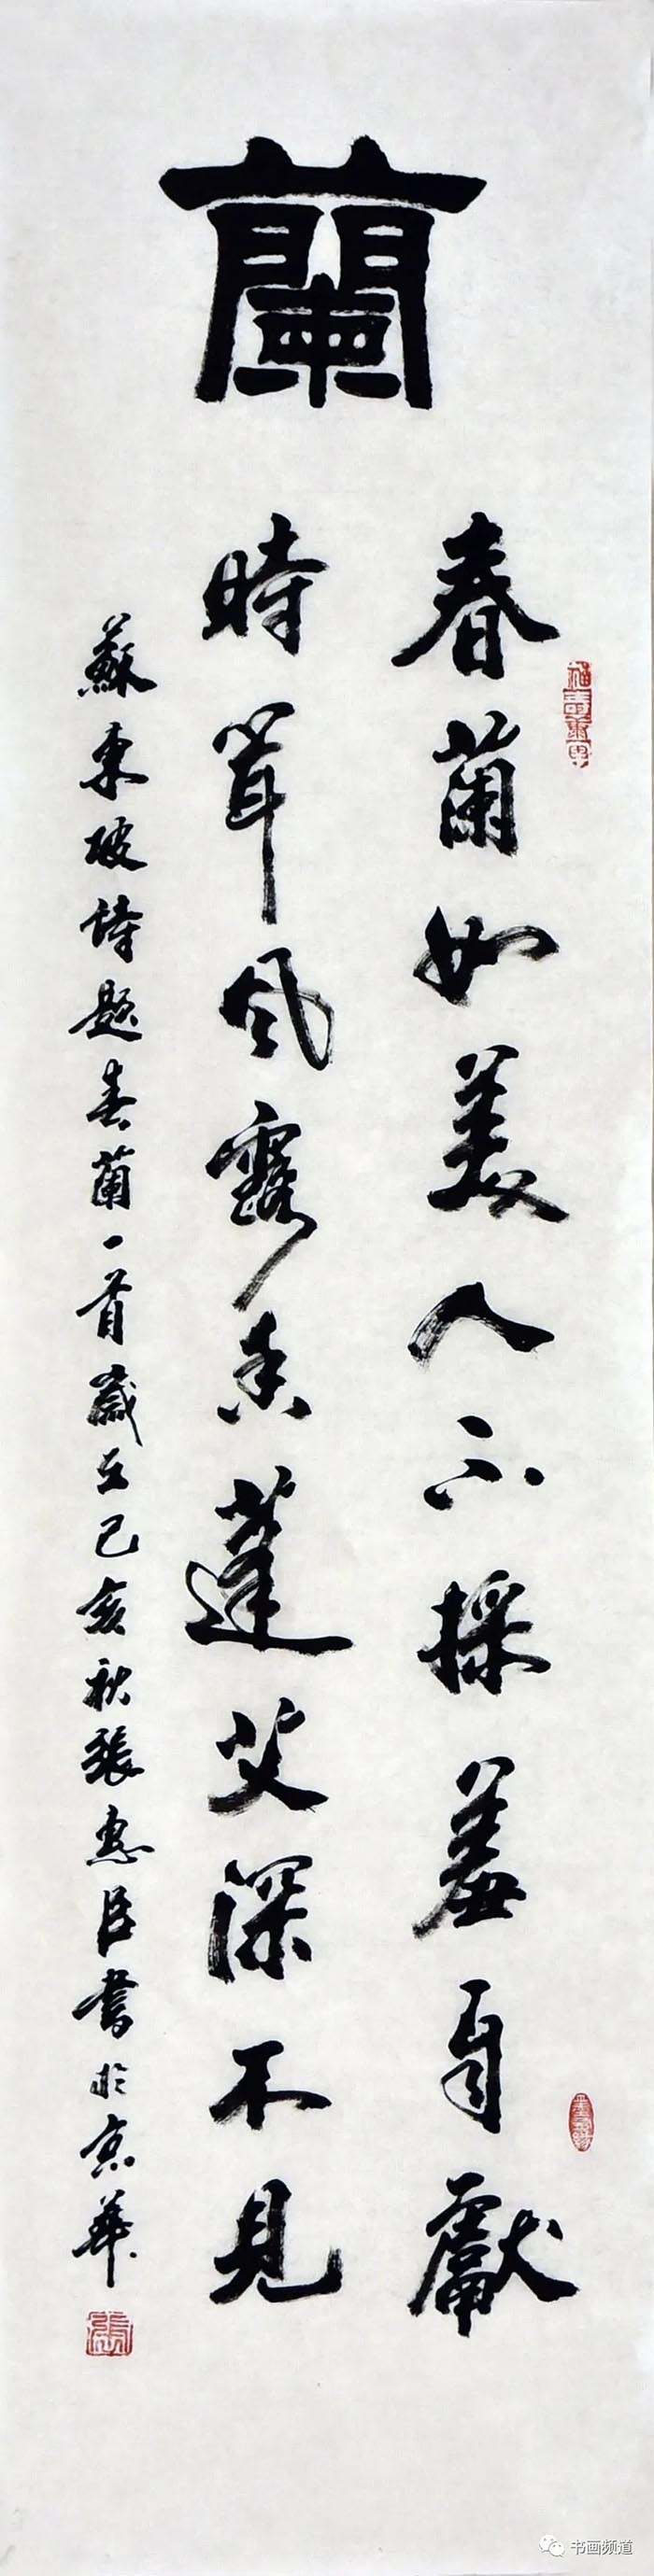 蘭
春蘭如美人不採羞自獻
時聞風露香蓬艾深不見
蘇東坡詩題春蘭一首歲在己亥秋張惠臣書於京華
书画频道